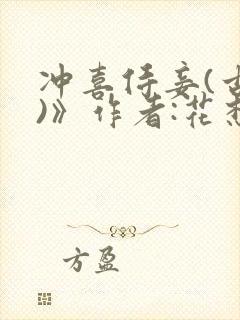 冲喜侍妾(古
)》作者:花
方盈